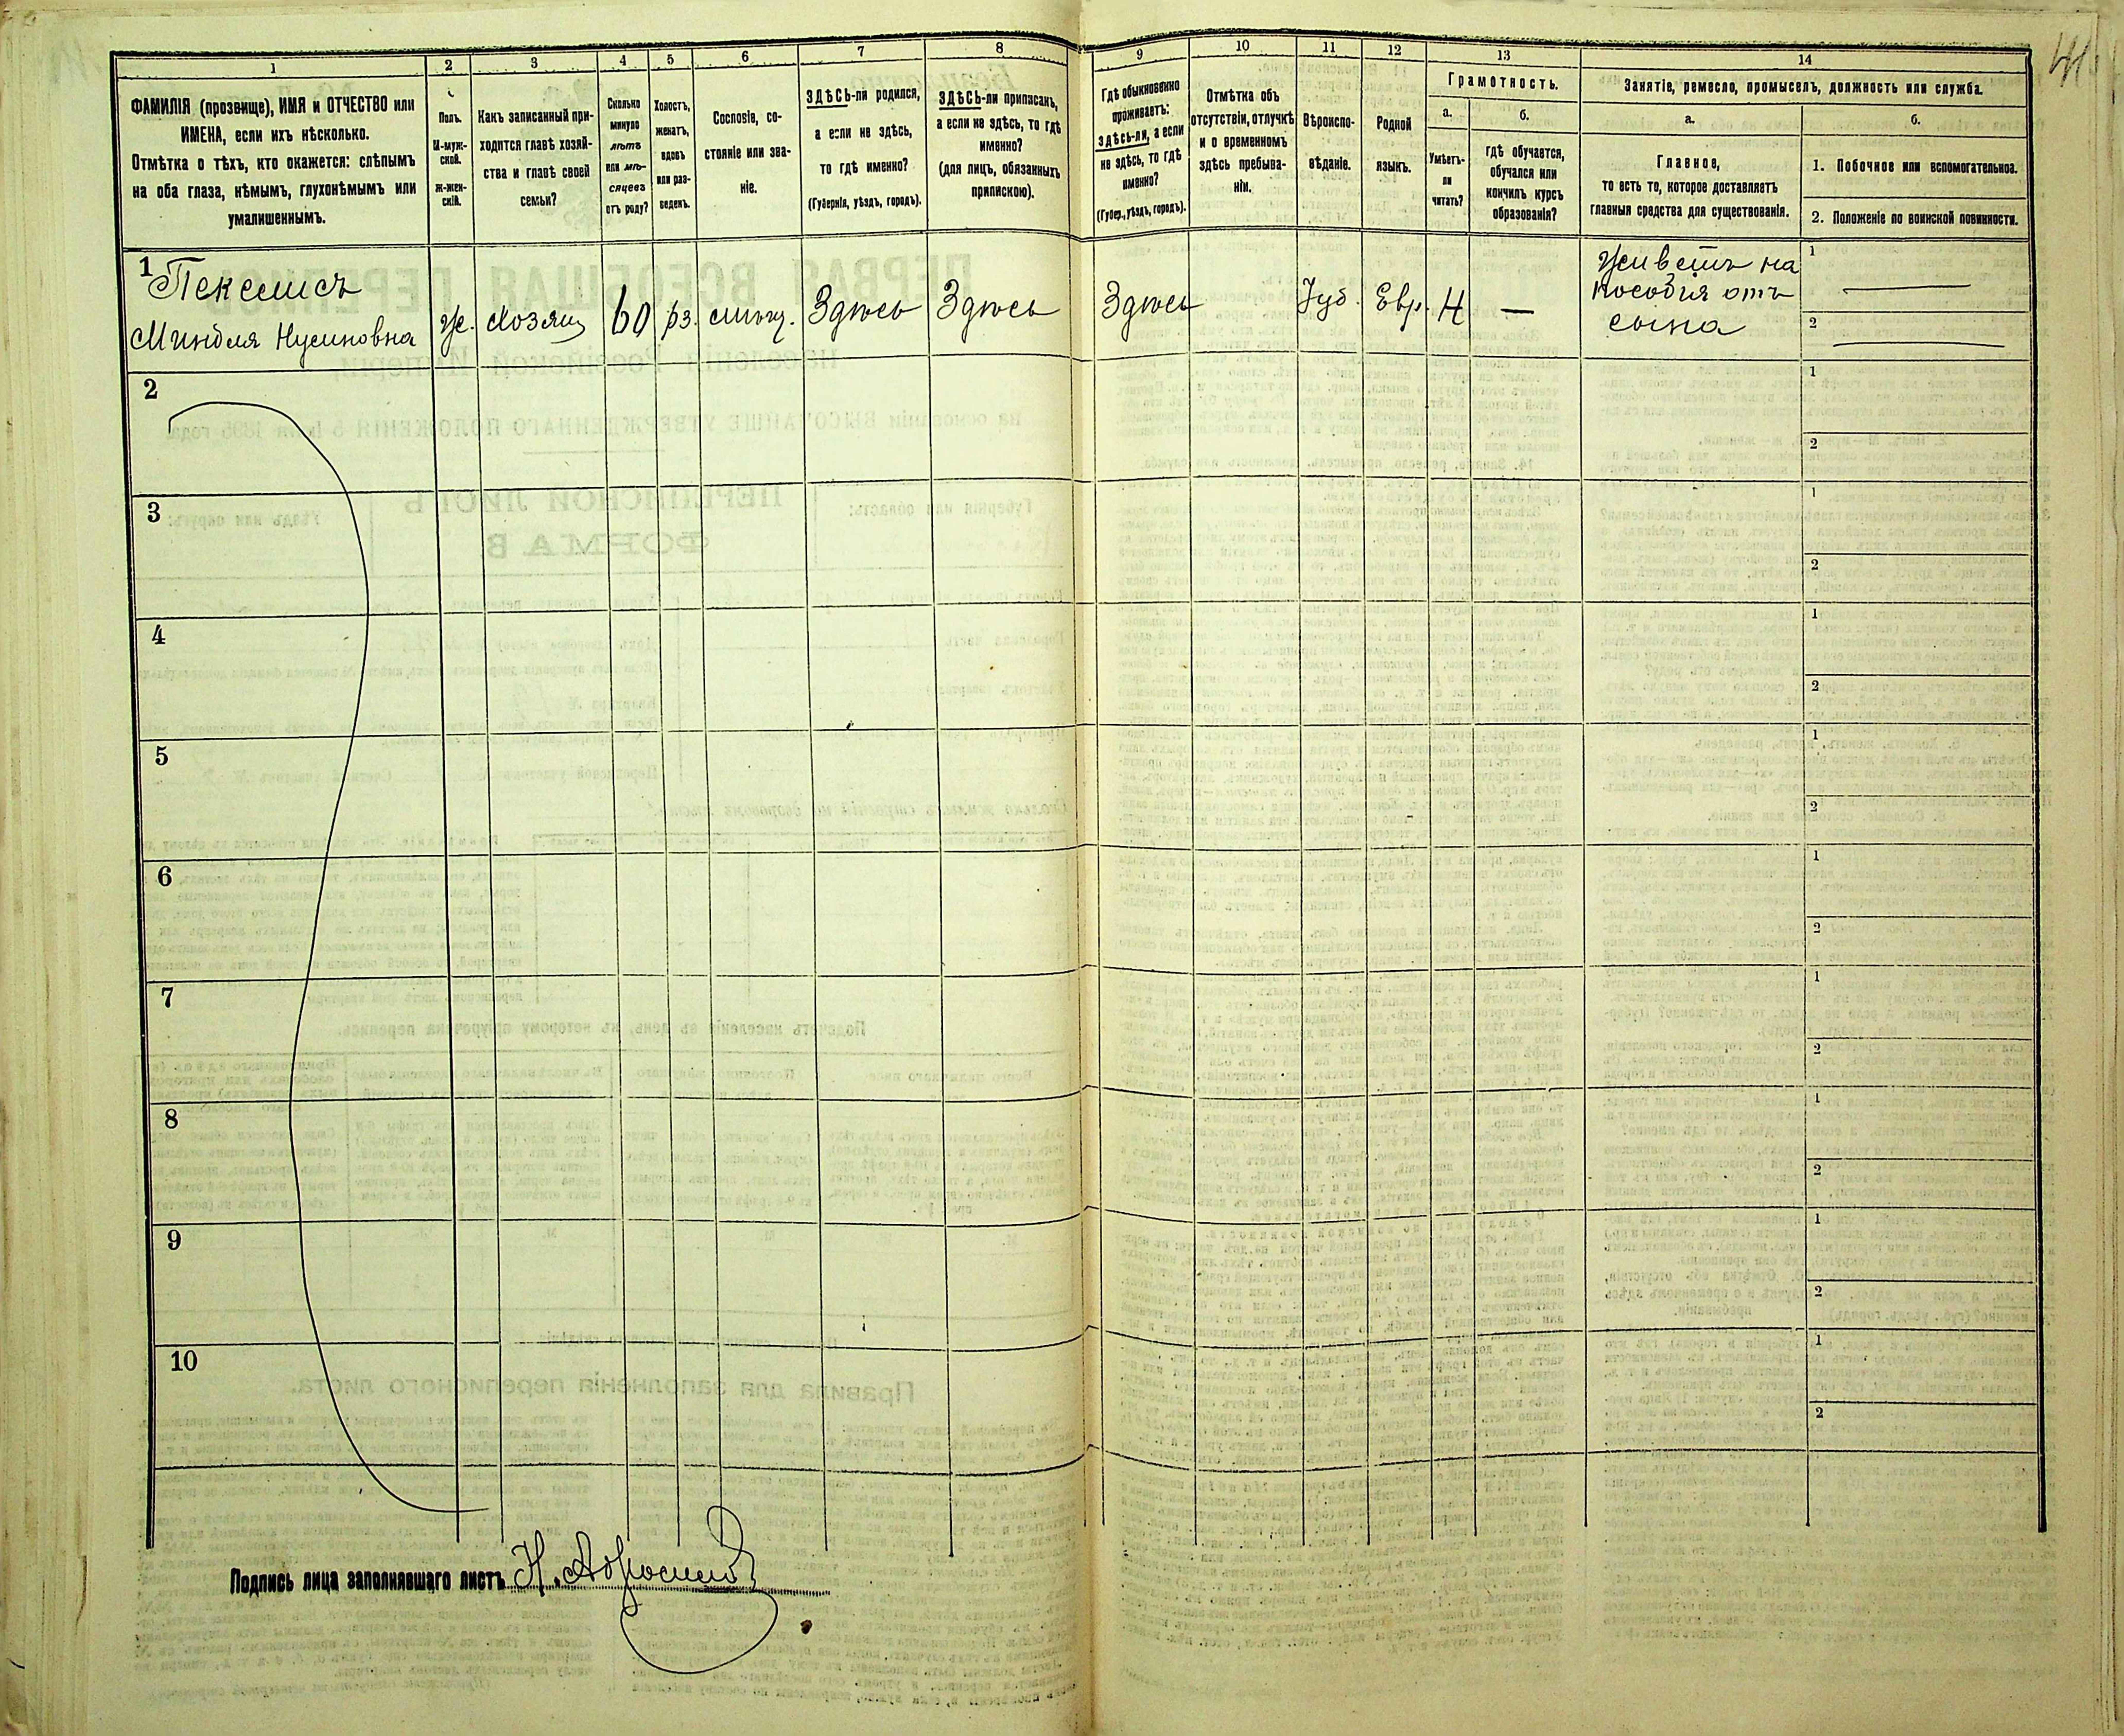 1
2
3
4
5
6
7
8
9
10
11
12
13
14
ФАМИЛІЯ (прозвище), ИМЯ и ОТЧЕСТВО или
ИМЕНА, если ихъ нѣсколько.
Отмѣтка о тѣхъ, кто окажется: слѣпымъ
на оба глаза, нѣмымъ, глухонѣмымъ или
умалишеннымъ.
Полъ.
М-муж-
ской.
ж-жен-
скій.
Какъ записанный при-
ходится главѣ хозяй-
ства и главѣ своей
семьи?
Сколько
минуло
лѣтъ
или мѣ-
сяцевъ
отъ роду?
Холостъ,
женатъ,
вдовъ
или раз-
веденъ.
Сословіе, со-
стояніе или зва-
ніе.
ЗДѢСЬ-ли родился,
а если не здѣсь,
то гдѣ именно?
(Губернія, уѣздъ, городъ).
ЗДѢСЬ-ли приписанъ,
а если не здѣсь, то гдѣ
именно?
(для лицъ, обязанныхъ
припискою).
Гдѣ обыкновенно
проживаетъ:
здѣсь-ли, а если
не здѣсь, то гдѣ
именно?
(Губер., уѣздъ, городъ).
Отмѣтка объ
отсутствіи, отлучкѣ
и о временномъ
здѣсь пребыва-
ніи.
Вѣроиспо-
вѣданіе.
Родной
языкъ.
Грамотность.
а.
Умѣетъ-
ли
читать?
б.
гдѣ обучается,
обучался или
кончилъ курсъ
образованія?
Занятіе, ремесло, промыселъ, должность или служба.
а.
Главное,
то есть то, которое доставляетъ
главныя средства для существованія.
б.
1. Побочное или вспомогательное.
2. Положеніе по воинской повинности.
1 Пекелисъ
Миндля Нусиновна
ж.
хозяин
60
рз.
мѣщ.
Здѣсь
Здѣсь
Здѣсь
Іуд.
Евр.
Н
—
Живетъ на
пособія отъ
сына
1 —
2 —
2
1
2
3
1
2
4
1
2
5
1
2
6
1
2
7
1
2
8
1
2
9
1
2
10
1
2
Подпись лица заполнявшаго листъ